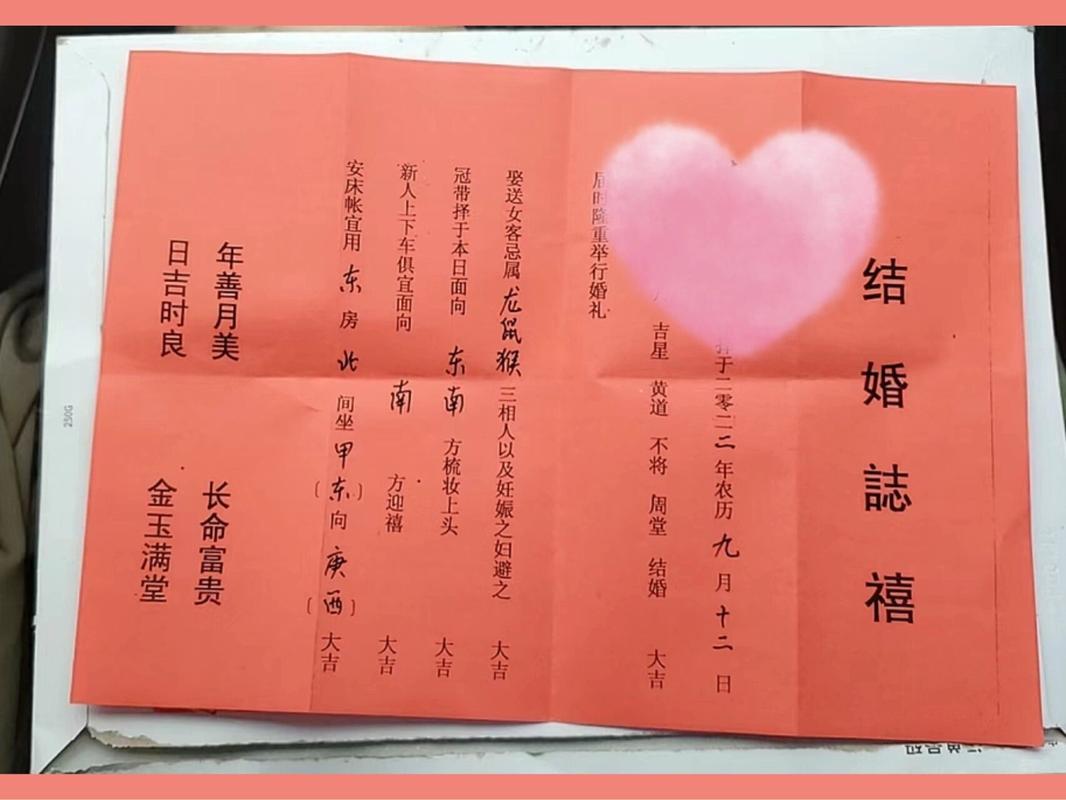 结婚誌禧
择于二零二二年农历九月十二日
吉星 黄道 不将 周堂 结婚 大吉
届时隆重举行婚礼
娶送女客忌属龙鼠猴三相人以及妊娠之妇避之 大吉
冠带择于本日面向东南方梳妆上头 大吉
新人上下车俱宜面向南方迎禧 大吉
安床帐宜用东房北间坐甲〔东〕向庚〔西〕大吉
年善月美 长命富贵
日吉时良 金玉满堂
250G